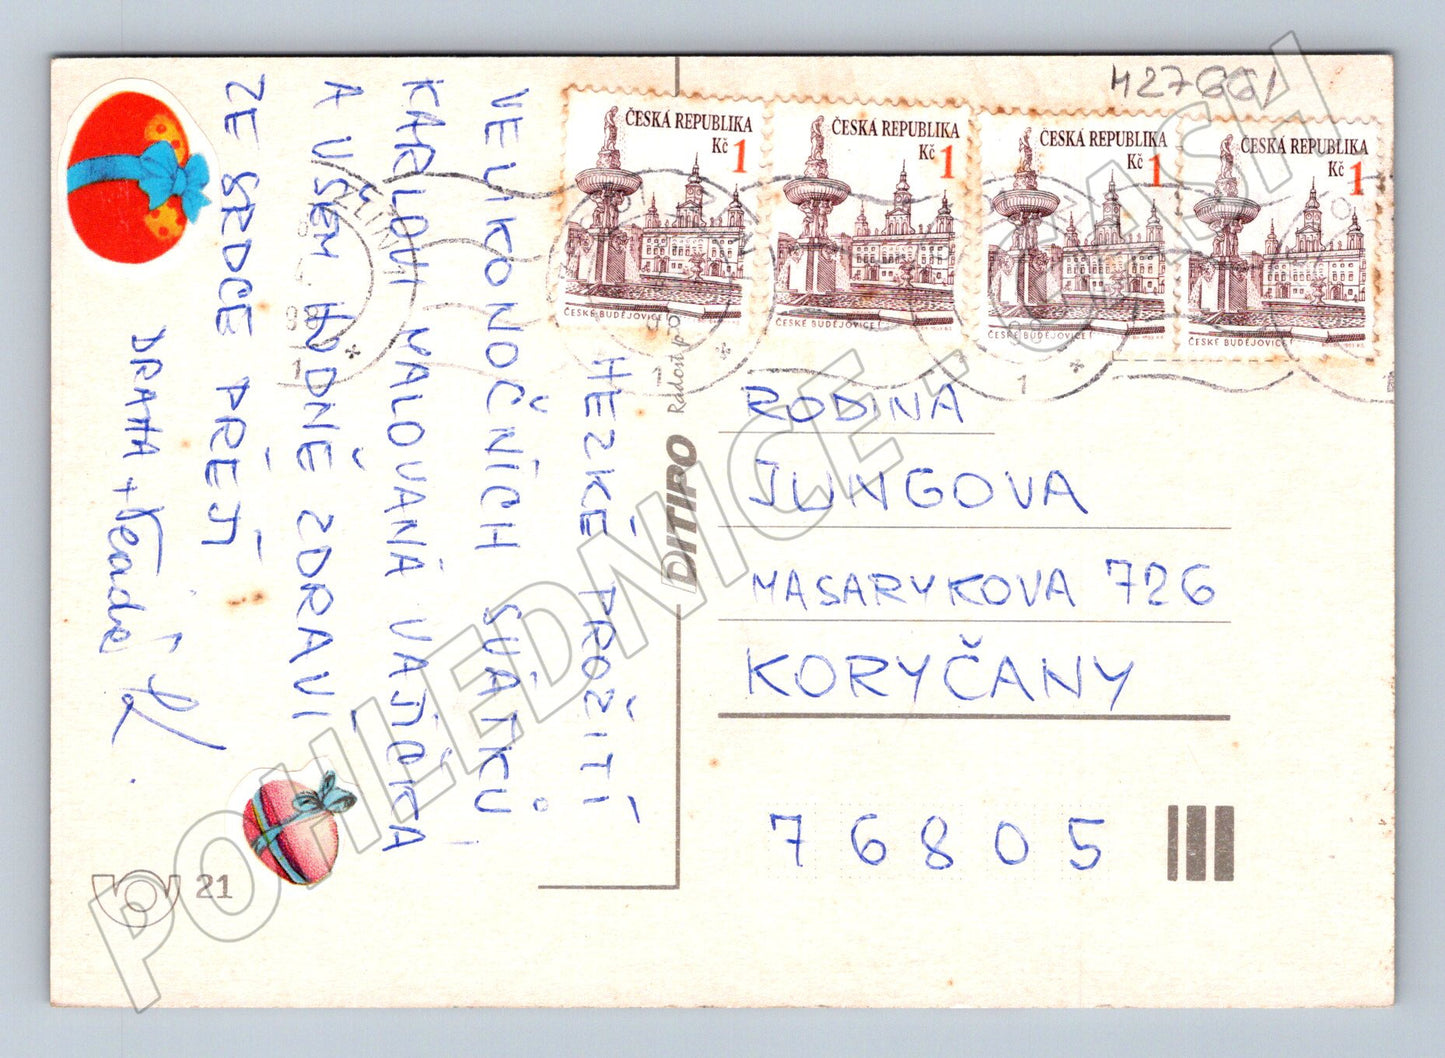 HEZKÉ PROŽITÍ
VELIKONOČNÍCH SVÁTKŮ,
KARLOVI MALOVANÁ VAJÍČKA
A VŠEM HODNĚ ZDRAVÍ
ZE SRDCE PŘEJÍ
DRAHA +
M27661
ČESKÁ REPUBLIKA
Kč 1
ČESKÉ BUDĚJOVICE
ČESKÁ REPUBLIKA
Kč 1
ČESKÉ BUDĚJOVICE
ČESKÁ REPUBLIKA
Kč 1
ČESKÉ BUDĚJOVICE
ČESKÁ REPUBLIKA
Kč 1
ČESKÉ BUDĚJOVICE
DITIPO
RODINA
JUNGOVA
MASARYKOVA 726
KORYČANY
76805
21
POHLEDNICE - CASH